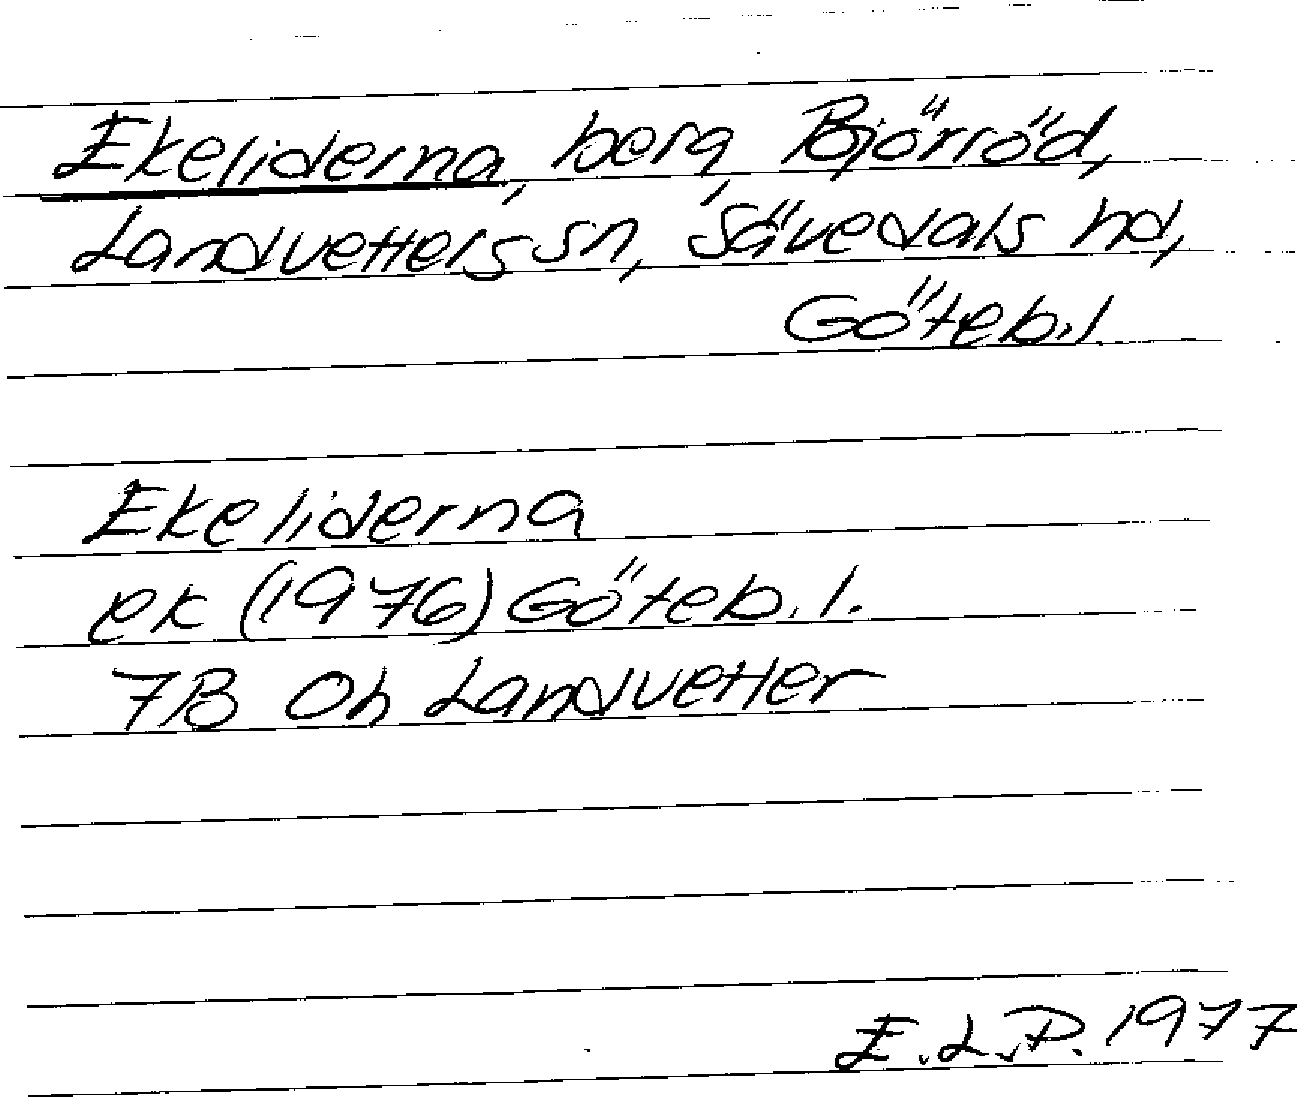 Ekeliderna, berg, Björröd,
Landvetters sn, Sävedals hd,
Göteb.l
Ekeliderna
ek (1976) Göteb.l.
7B 0h Landvetter
E.L.P. 1977